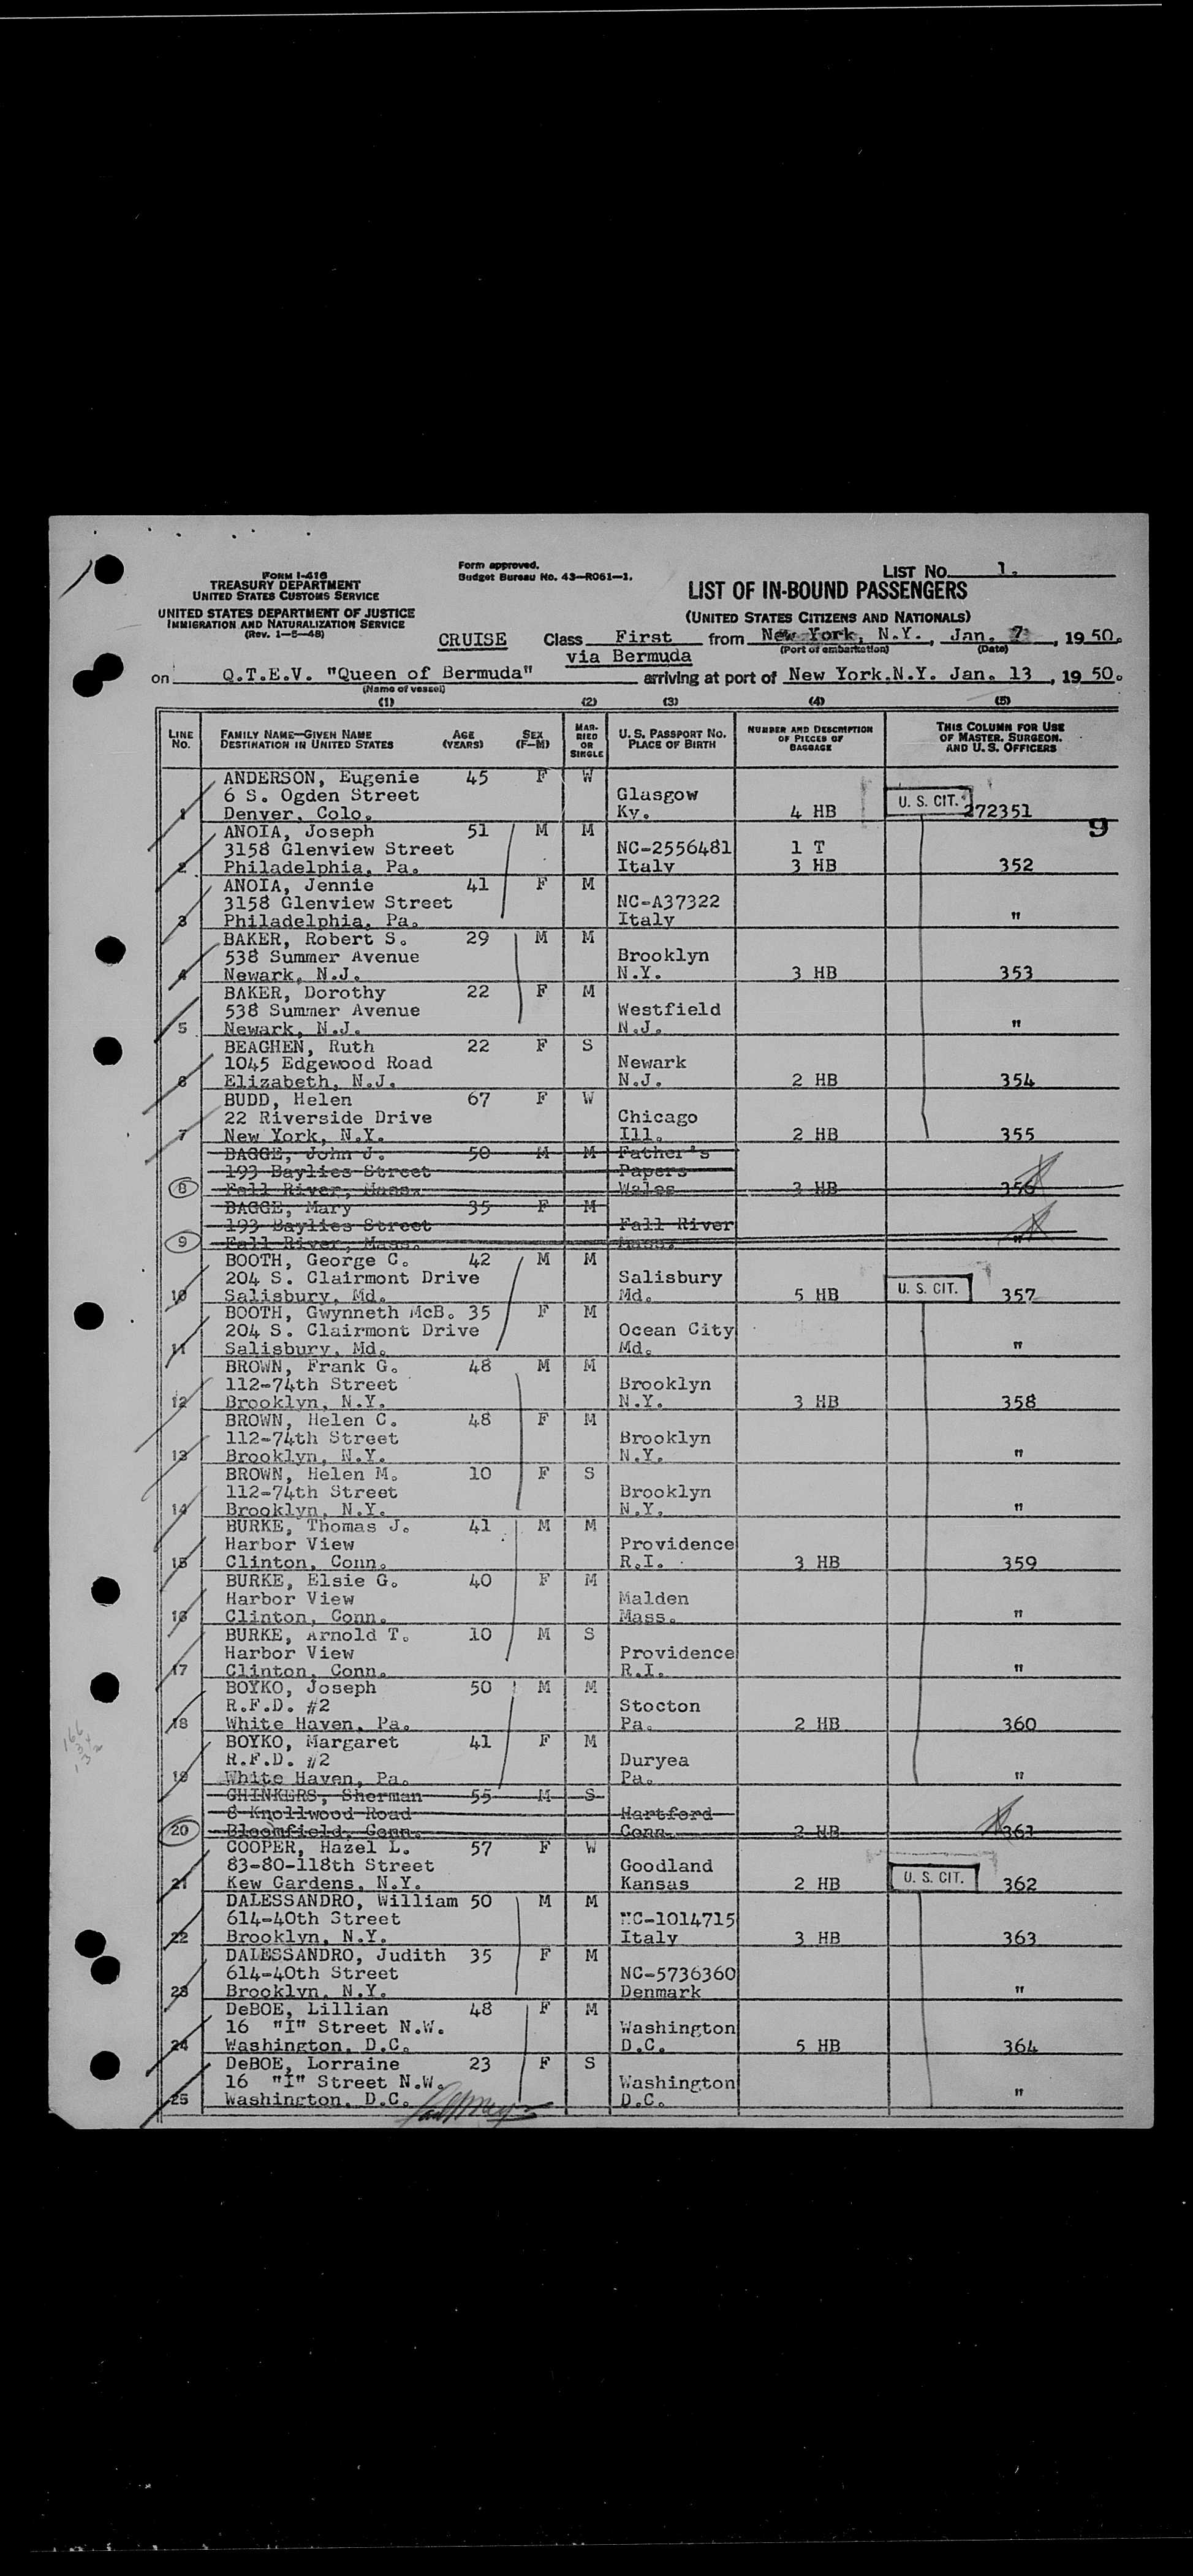 Form I-416
TREASURY DEPARTMENT
UNITED STATES CUSTOMS SERVICE
UNITED STATES DEPARTMENT OF JUSTICE
IMMIGRATION AND NATURALIZATION SERVICE
(Rev. 1-5-48)
Form approved.
Budget Bureau No. 43-R061-1.
LIST No. 1.
LIST OF IN-BOUND PASSENGERS
(UNITED STATES CITIZENS AND NATIONALS)
CRUISE Class First from New York, N.Y., Jan. 7, 1950.
(Port of embarkation) (Date)
via Bermuda
on Q.T.E.V. "Queen of Bermuda" arriving at port of New York.N.Y. Jan. 13, 1950.
(Name of vessel)
(1) (2) (3) (4) (5)
LINE No. FAMILY NAME—GIVEN NAME DESTINATION IN UNITED STATES AGE (YEARS) SEX (F-M) MARRIED OR SINGLE U. S. PASSPORT No. PLACE OF BIRTH NUMBER AND DESCRIPTION OF PIECES OF BAGGAGE THIS COLUMN FOR USE OF MASTER, SURGEON, AND U. S. OFFICERS
ANDERSON, Eugenie 45 F W
6 S. Ogden Street Glasgow U. S. CIT.
1 Denver, Colo. Ky. 4 HB 272351
9
ANOIA, Joseph 51 M M
3158 Glenview Street NC-2556481 1 T
2 Philadelphia, Pa. Italy 3 HB 352
ANOIA, Jennie 41 F M
3158 Glenview Street NC-A37322
3 Philadelphia, Pa. Italy "
BAKER, Robert S. 29 M M
538 Summer Avenue Brooklyn
4 Newark, N.J. N.Y. 3 HB 353
BAKER, Dorothy 22 F M
538 Summer Avenue Westfield
5 Newark, N.J. N.J. "
BEAGHEN, Ruth 22 F S
1045 Edgewood Road Newark
6 Elizabeth, N.J. N.J. 2 HB 354
BUDD, Helen 67 F W
22 Riverside Drive Chicago
7 New York, N.Y. Ill. 2 HB 355
BAGGE, John J. 50 M M Father's
193 Baylies Street Papers
8 Fall River, Mass. Wales 3 HB 356
BAGGE, Mary 35 F M
193 Baylies Street Fall River
9 Fall River, Mass. Mass. "
BOOTH, George C. 42 M M
204 S. Clairmont Drive Salisbury U. S. CIT.
10 Salisbury, Md. Md. 5 HB 357
BOOTH, Gwynneth McB. 35 F M
204 S. Clairmont Drive Ocean City
11 Salisbury, Md. Md. "
BROWN, Frank G. 48 M M
112-74th Street Brooklyn
12 Brooklyn, N.Y. N.Y. 3 HB 358
BROWN, Helen C. 48 F M
112-74th Street Brooklyn
13 Brooklyn, N.Y. N.Y. "
BROWN, Helen M. 10 F S
112-74th Street Brooklyn
14 Brooklyn, N.Y. N.Y. "
BURKE, Thomas J. 41 M M
Harbor View Providence
15 Clinton, Conn. R.I. 3 HB 359
BURKE, Elsie G. 40 F M
Harbor View Malden
16 Clinton, Conn. Mass. "
BURKE, Arnold T. 10 M S
Harbor View Providence
17 Clinton, Conn. R.I. "
BOYKO, Joseph 50 M M
R.F.D. #2 Stocton
18 White Haven, Pa. Pa. 2 HB 360
BOYKO, Margaret 41 F M
R.F.D. #2 Duryea
19 White Haven, Pa. Pa. "
CHINKERS, Sherman 55 M S
8 Knollwood Road Hartford
20 Bloomfield, Conn. Conn. 2 HB 361
COOPER, Hazel L. 57 F W
83-80-118th Street Goodland U. S. CIT.
21 Kew Gardens, N.Y. Kansas 2 HB 362
DALESSANDRO, William 50 M M
614-40th Street NC-1014715
22 Brooklyn, N.Y. Italy 3 HB 363
DALESSANDRO, Judith 35 F M
614-40th Street NC-5736360
23 Brooklyn, N.Y. Denmark "
DeBOE, Lillian 48 F M
16 "I" Street N.W. Washington
24 Washington, D.C. D.C. 5 HB 364
DeBOE, Lorraine 23 F S
16 "I" Street N.W. Washington
25 Washington, D.C. D.C. "